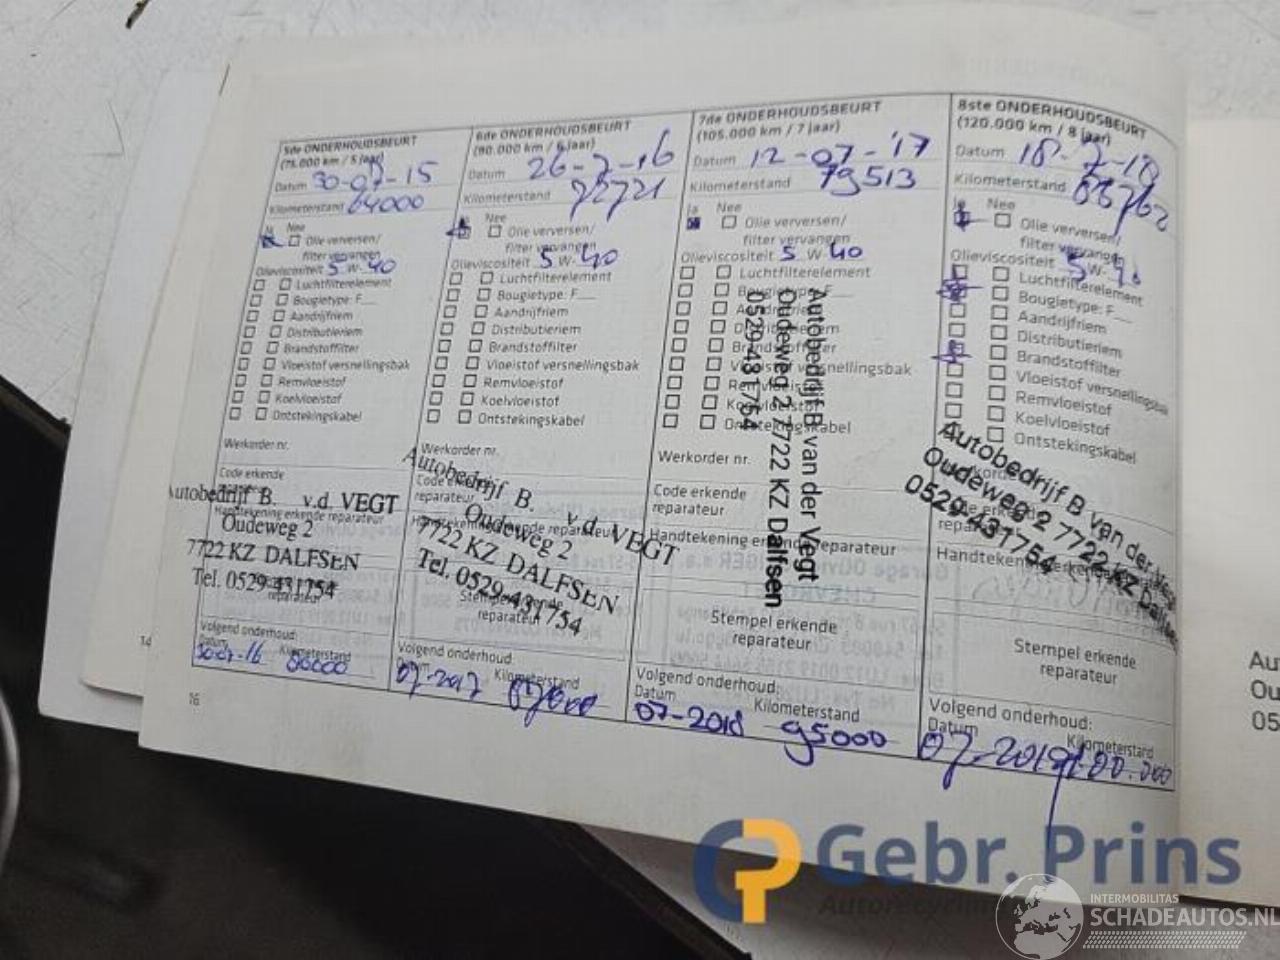 5de ONDERHOUDSBEURT
(75.000 km / 5 jaar)
Datum 30-07-15
Kilometerstand 64000
Ja Nee
Olie verversen/
filter vervangen
Olieviscositeit 5 W- 40
Luchtfilterelement
Bougietype: F
Aandrijfriem
Distributieriem
Brandstoffilter
Vloeistof versnellingsbak
Remvloeistof
Koelvloeistof
Ontstekingskabel
Werkorder nr.
Code erkende
Autobedrijf B. v.d. VEGT
Handtekening erkende reparateur
Oudeweg 2
7722 KZ DALFSEN
Tel. 0529-431754
reparateur
Volgend onderhoud:
Datum Kilometerstand
30-07-16 80000
16
6de ONDERHOUDSBEURT
(90.000 km / 6 jaar)
Datum 26-7-16
Kilometerstand 72721
Ja Nee
Olie verversen/
filter vervangen
Olieviscositeit 5 W- 40
Luchtfilterelement
Bougietype: F
Aandrijfriem
Distributieriem
Brandstoffilter
Vloeistof versnellingsbak
Remvloeistof
Koelvloeistof
Ontstekingskabel
Werkorder nr.
Code erkende
reparateur
Autobedrijf B. v.d. VEGT
Handtekening erkende reparateur
Oudeweg 2
7722 KZ DALFSEN
Tel. 0529-431754
Stempel erkende
reparateur
Volgend onderhoud:
Datum Kilometerstand
07-2017
7de ONDERHOUDSBEURT
(105.000 km / 7 jaar)
Datum 12-07-'17
Kilometerstand 79513
Ja Nee
Olie verversen/
filter vervangen
Olieviscositeit 5 W- 40
Luchtfilterelement
Bougietype: F
Aandrijfriem
Distributieriem
Brandstoffilter
Vloeistof versnellingsbak
Remvloeistof
Koelvloeistof
Ontstekingskabel
Autobedrijf B van der Vegt
Oudeweg 2 7722 KZ Dalfsen
0529-431754
Werkorder nr.
Code erkende
reparateur
Handtekening erkende reparateur
Stempel erkende
reparateur
Volgend onderhoud:
Datum Kilometerstand
07-2018 95000
8ste ONDERHOUDSBEURT
(120.000 km / 8 jaar)
Datum 18-7-18
Kilometerstand
Ja Nee
Olie verversen/
filter vervangen
Olieviscositeit 5 W- 40
Luchtfilterelement
Bougietype: F
Aandrijfriem
Distributieriem
Brandstoffilter
Vloeistof versnellingsbak
Remvloeistof
Koelvloeistof
Ontstekingskabel
Autobedrijf B van der Vegt
Oudeweg 2 7722 KZ Dalfsen
0529-431754
Handtekening erkende reparateur
Stempel erkende
reparateur
Volgend onderhoud:
Datum Kilometerstand
07-2019 100.000
14
Au
Ou
05
Gebr. Prins
INTERMOBILITAS
SCHADEAUTOS.NL